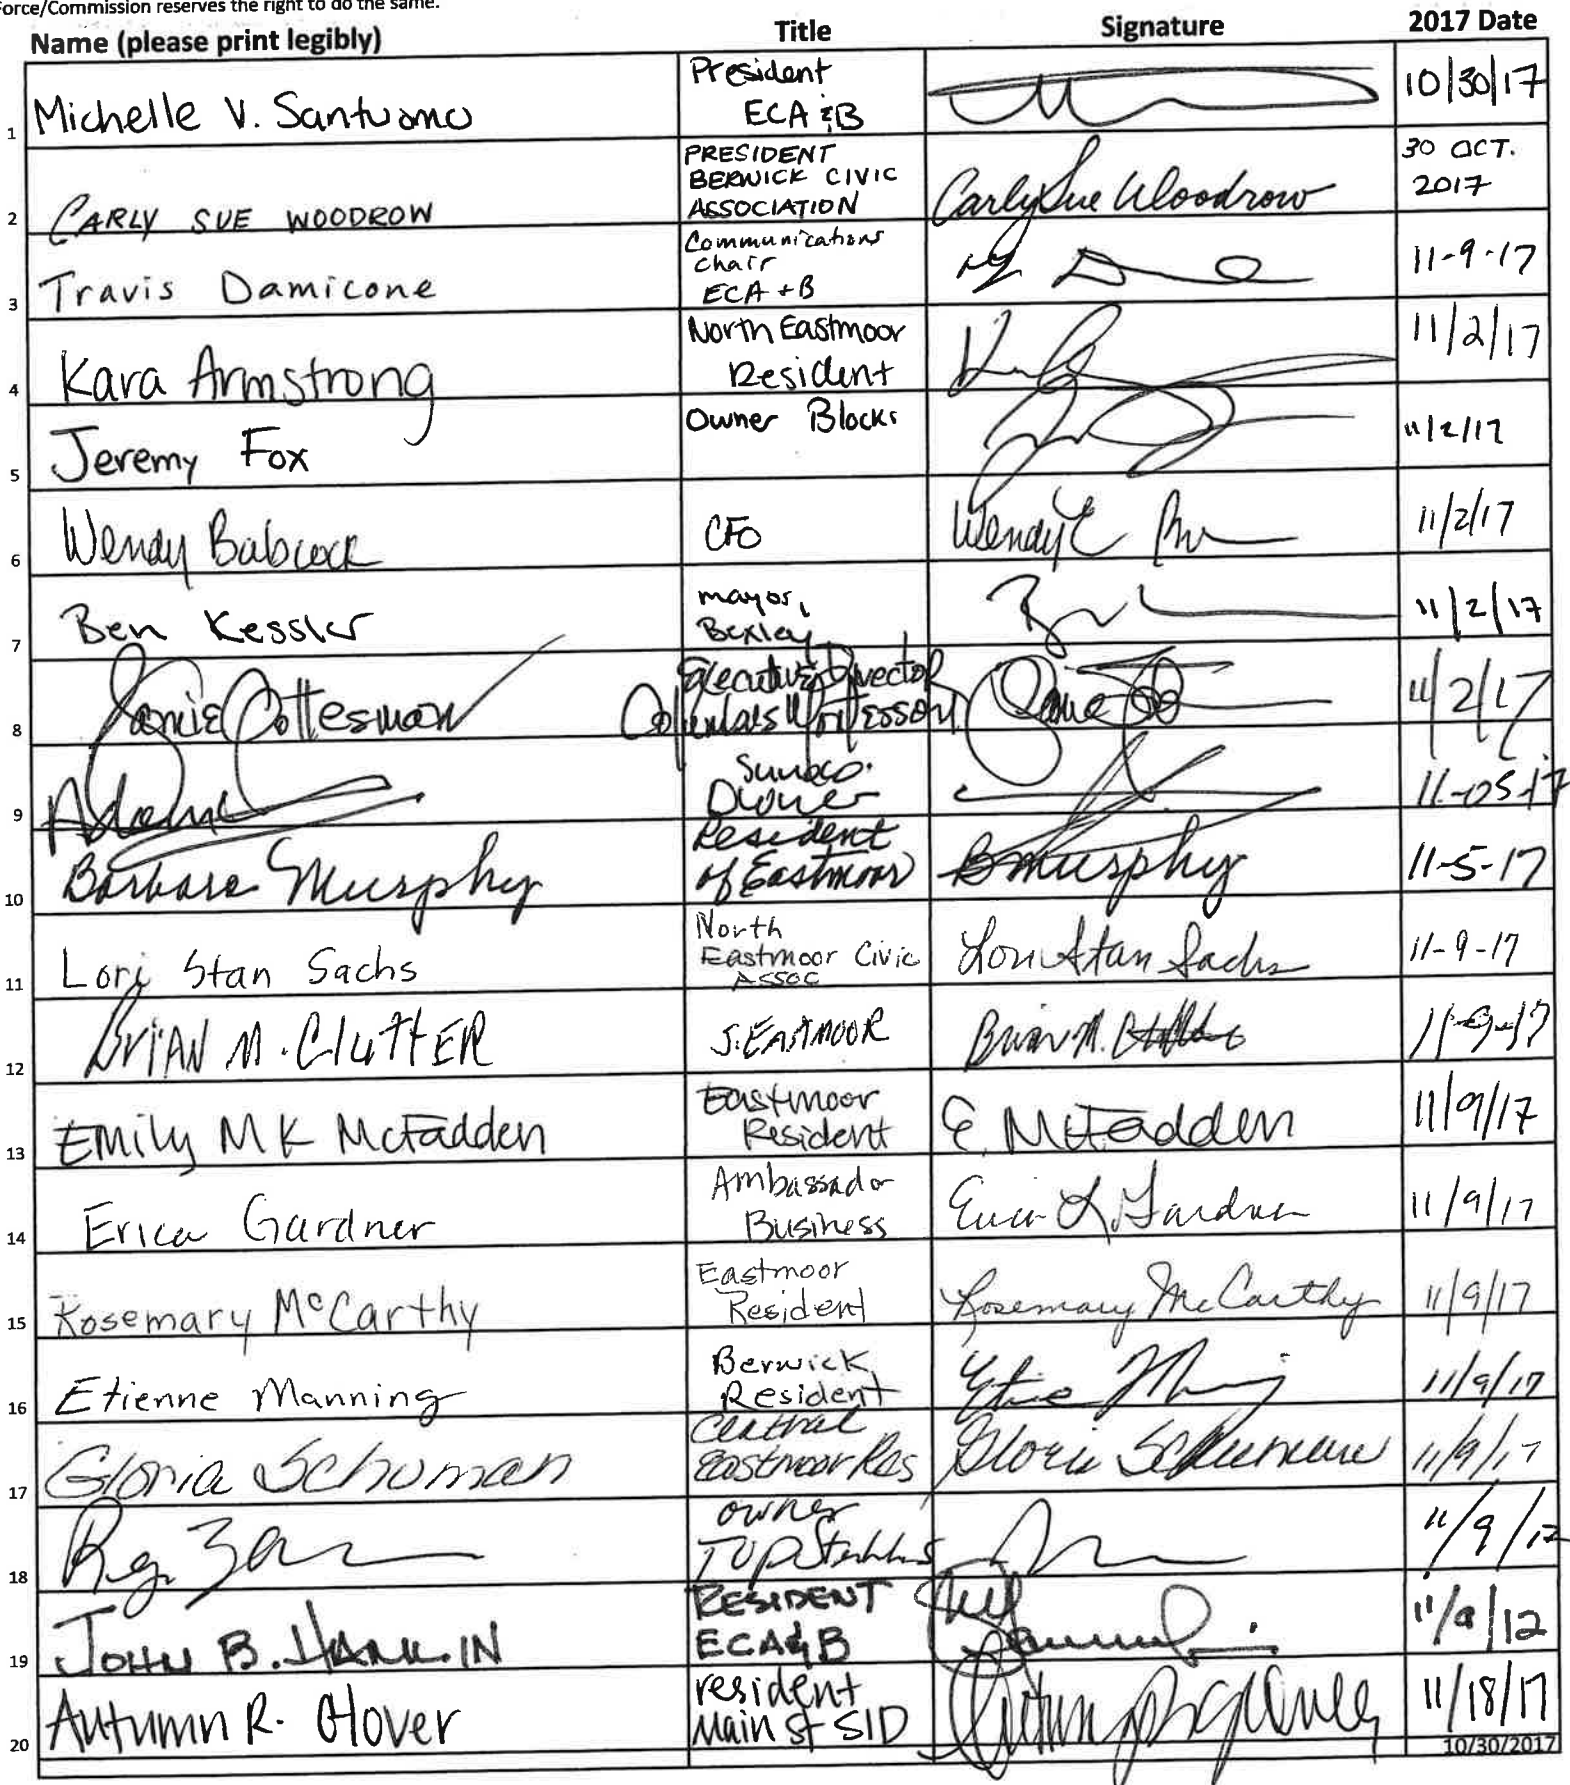 Force/Commission reserves the right to do the same.
Name (please print legibly) Title Signature 2017 Date
1 Michelle V. Santuomo President ECA & B 10/30/17
2 CARLY SUE WOODROW PRESIDENT BERWICK CIVIC ASSOCIATION Carly Sue Woodrow 30 OCT. 2017
3 Travis Damicone Communications Chair ECA + B 11-9-17
4 Kara Armstrong North Eastmoor Resident 11/2/17
5 Jeremy Fox Owner Block's 11/2/17
6 Wendy Babcock CFO Wendy E 11/2/17
7 Ben Kessler mayor, Bexley 11/2/17
8 Jamie Gottesman Executive Director Columbus Montessori 11/2/17
9 Adam Sunoco Owner 11-05-17
10 Barbara Murphy Resident of Eastmoor B Murphy 11-5-17
11 Lori Stan Sachs North Eastmoor Civic Assoc Lori Stan Sachs 11-9-17
12 BRIAN M. CLUTTER S. EASTMOOR Brian M. 11-9-17
13 Emily MK McFadden Eastmoor Resident E. McFadden 11/9/17
14 Erica Gardner Ambassador Business Erica L Gardner 11/9/17
15 Rosemary McCarthy Eastmoor Resident Rosemary McCarthy 11/9/17
16 Etienne Manning Berwick Resident 11/9/17
17 Gloria Schuman Central Eastmoor Res Gloria Schuman 11/9/17
18 owner TOP Steakhs 11/9/17
19 JOHN B. HANKIN RESIDENT ECA & B 11/9/12
20 Autumn R. Glover resident Main St SID 11/18/17
10/30/2017